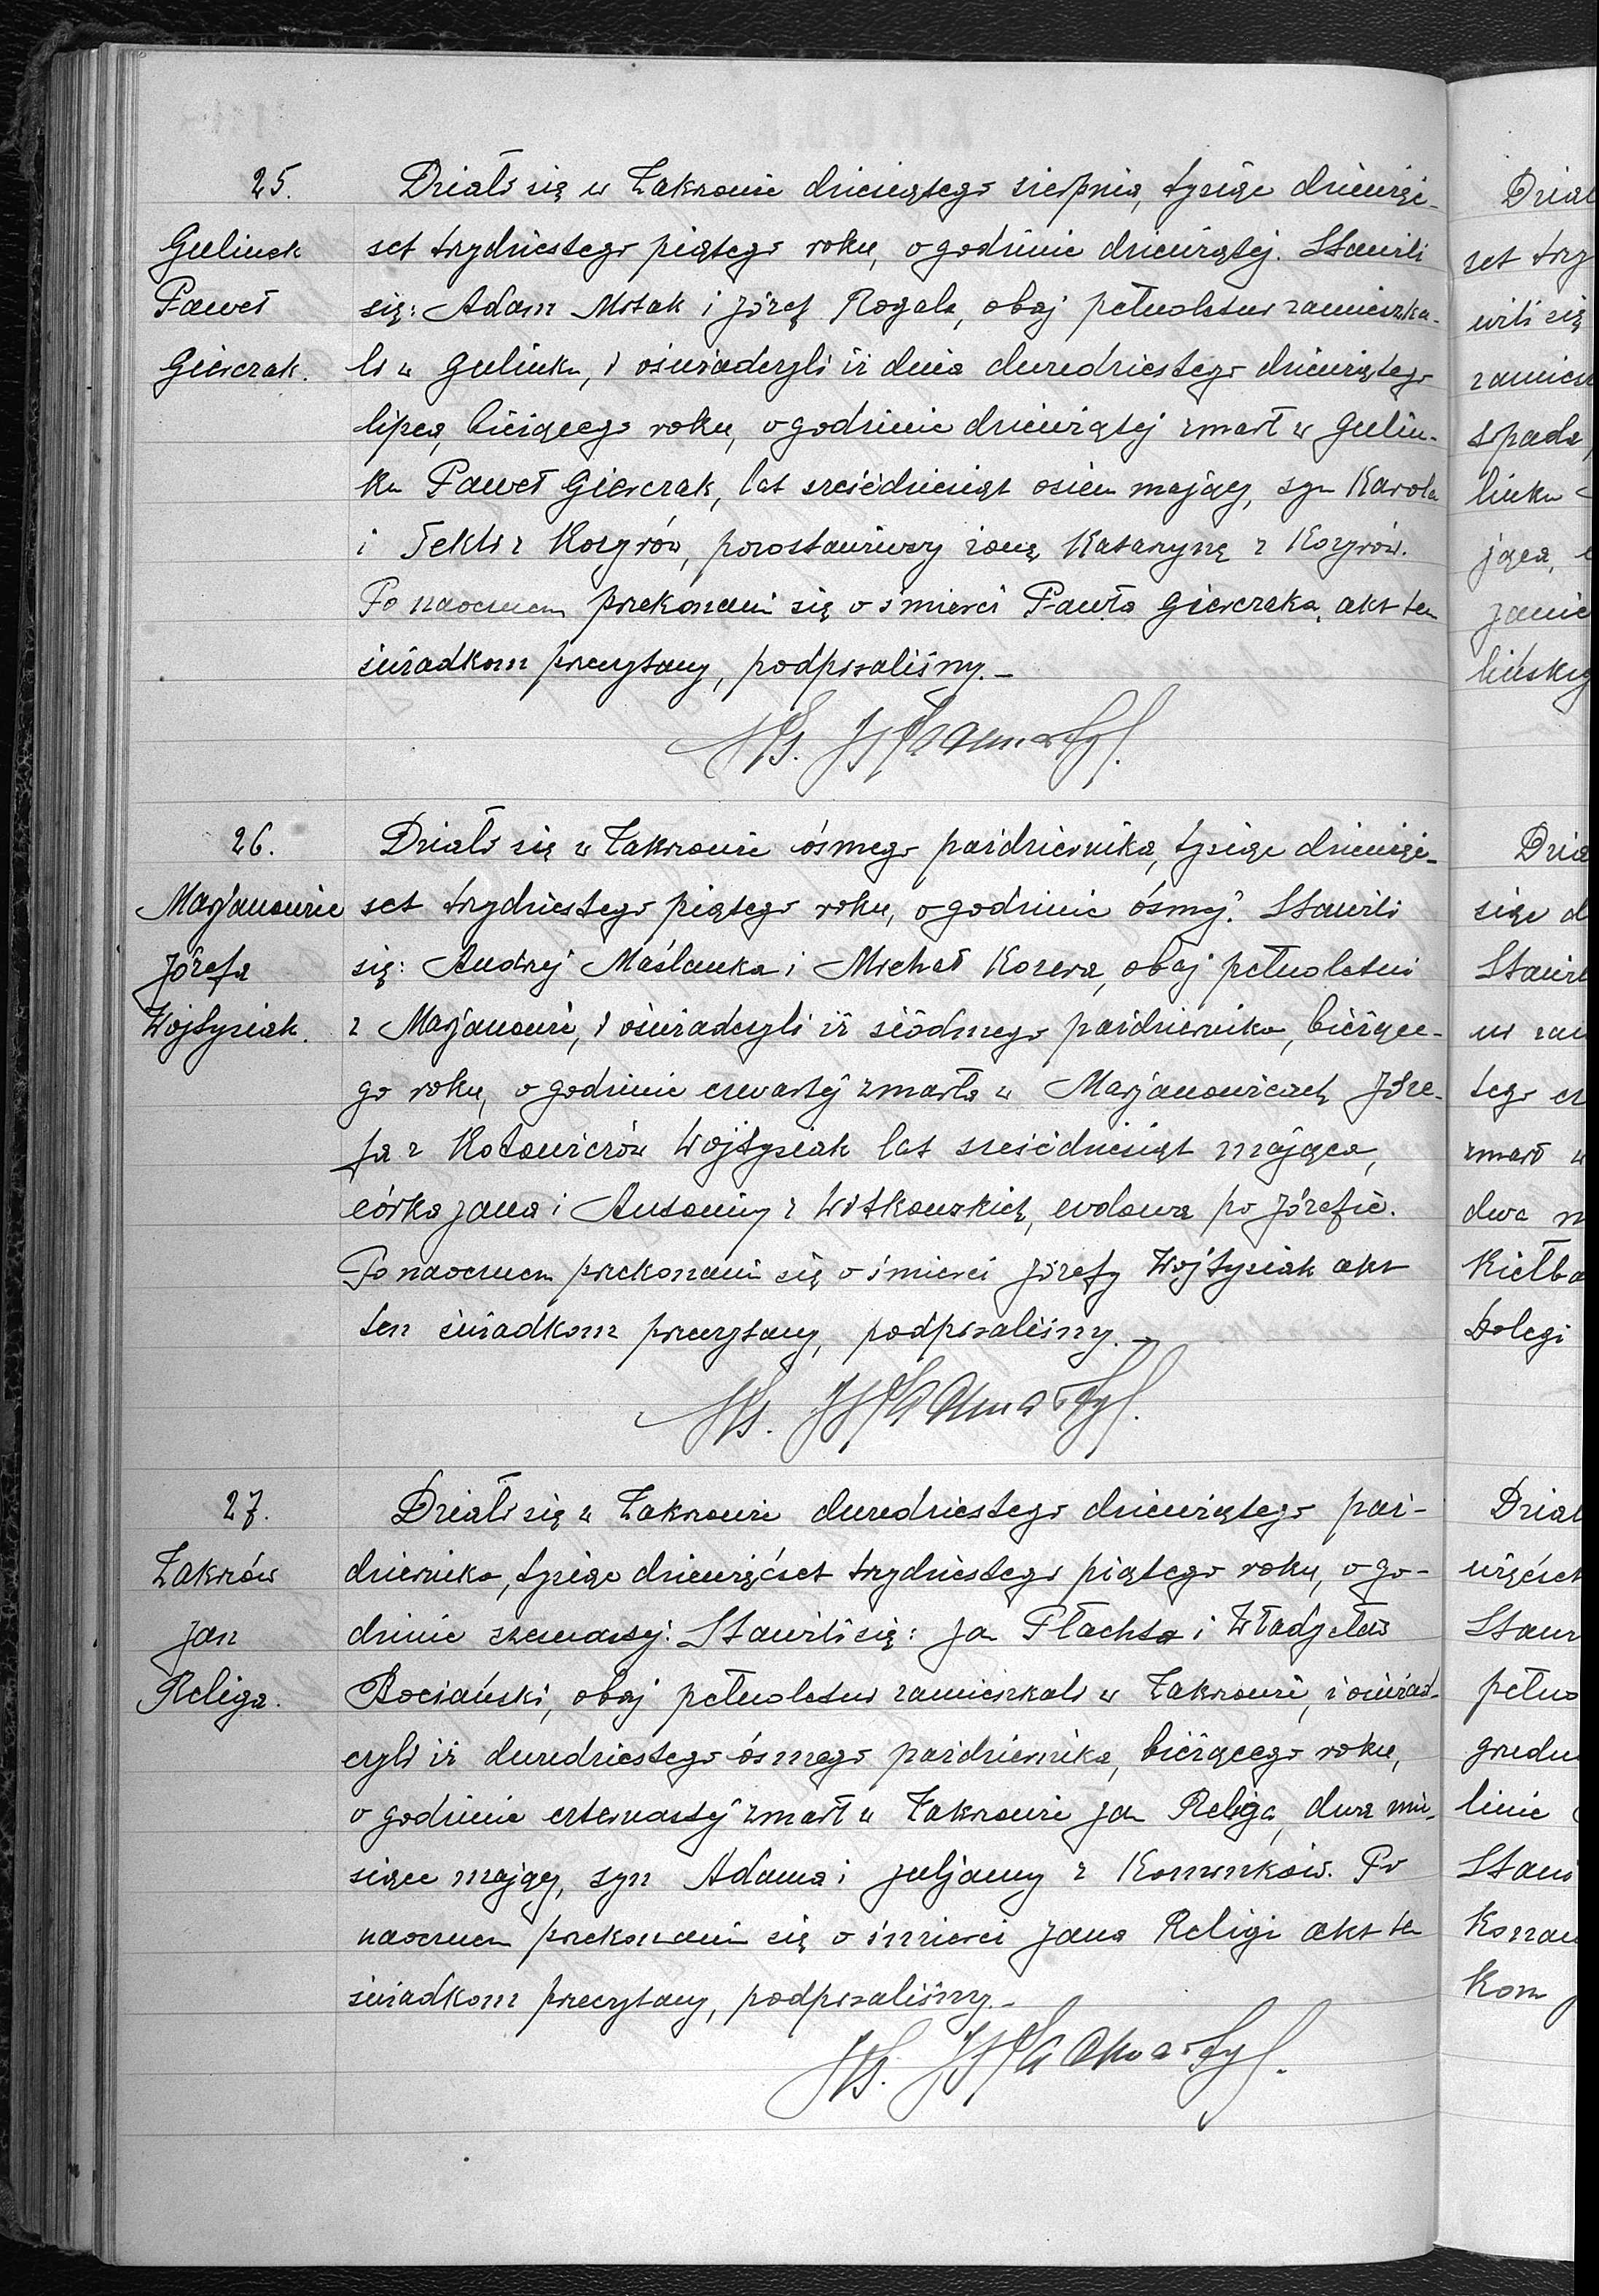 25.
Gulinek
Paweł
Gierczak.
Działo się w Zakrzowie dziesiątego sierpnia, tysiąc dziewięć-
set trzydziestego piątego roku, o godzinie dziewiątej. Stawili
się: Adam Motak i Józef Rogala, obaj pełnoletni zamieszka-
li w Gulinku, i oświadczyli iż dnia dwudziestego dziewiątego
lipca, bieżącego roku, o godzinie dziewiątej zmarł w Gulin-
ku Paweł Gierczak, lat sześćdziesiąt osiem mający, syn Karola
i Tekli z Kozyrów, pozostawiwszy żonę Katarzynę z Kozyrów.
Po naocznem przekonaniu się o śmierci Pawła Gierczaka, akt ten
świadkom przeczytany, podpisaliśmy.-
Ks.
26.
Marjanowice
Józefa
Wojtysiak.
Działo się w Zakrzowie ósmego października, tysiąc dziewięć-
set trzydziestego piątego roku, o godzinie ósmej. Stawili
się: Andrzej Maślanka i Michał Kozera, obaj pełnoletni
z Marjanowic, i oświadczyli iż siódmego października, bieżące-
go roku, o godzinie czwartej zmarła w Marjanowicach Józe-
fa z Kotowiczów Wojtysiak lat sześćdziesiąt mająca,
córka Jana i Antoniny z Witkowskich, wdowa po Józefie.
Po naocznem przekonaniu się o śmierci Józefy Wojtysiak akt
ten świadkom przeczytany, podpisaliśmy.-
Ks.
27.
Zakrzów
Jan
Religa.
Działo się w Zakrzowie dwudziestego dziewiątego paź-
dziernika, tysiąc dziewięćset trzydziestego piątego roku, o go-
dzinie szesnastej. Stawili się: Jan Płachta i Władysław
Bociański, obaj pełnoletni zamieszkali w Zakrzowie, i oświad-
czyli iż dwudziestego ósmego października, bieżącego roku,
o godzinie czternastej zmarł w Zakrzowie Jan Religa, dwa mie-
siące mający, syn Adama i Juljanny z Kominków. Po
naocznem przekonaniu się o śmierci Jana Religi akt ten
świadkom przeczytany, podpisaliśmy.-
Ks.
Dział
set trzy
wili się
zamiesz
spada,
linku
jąca,
linskiej
Dzia
siąc d
Stawil
tego
zmarł w
dwa m
Kiełba
Dolegi
Dział
więćset
Staw
pełno
grudn
linie
Stani
kom